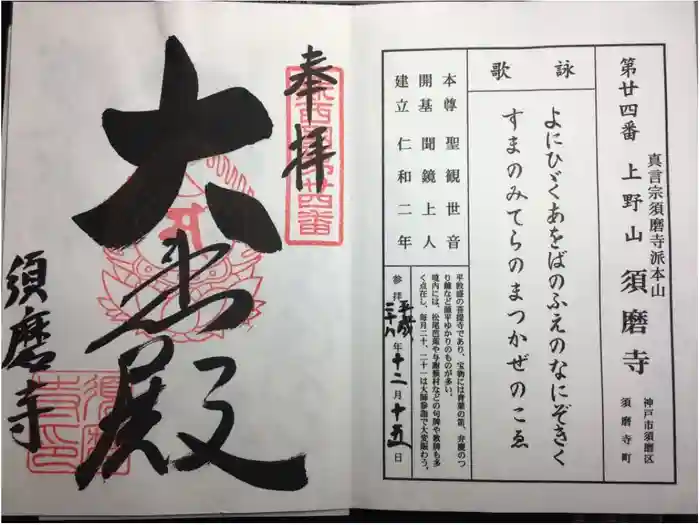 第廿四番 上野山 須磨寺
真言宗須磨寺派本山
神戸市須磨区
須磨寺町
詠歌
よにひゞくあをばのふえのなにぞきく
すまのみてらのまつかぜのこゑ
本尊 聖観世音
開基 聞鏡上人
建立 仁和二年
平敦盛の菩提寺であり、宝物には青葉の笛、弁慶のつ
り鐘など源平ゆかりのものが多い。
境内には、松尾芭蕉や与謝蕪村などの句碑や歌碑も多
く点在し、毎月二十、二十一は大師参詣で大変賑わう。
参拝 平成二十八年十二月十五日
奉拝
第廿四番
大悲殿
須磨寺
須磨寺印